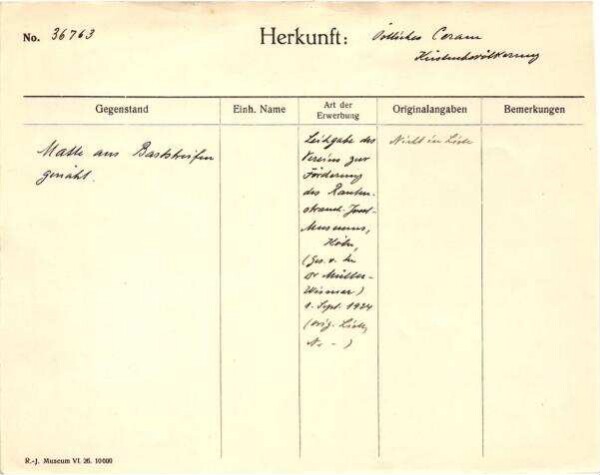 No. 36763
Herkunft: Östliches Ceram
Küstenbevölkerung
Gegenstand
Einh. Name
Art der
Erwerbung
Originalangaben
Bemerkungen
Matte aus Baststreifen
genäht.
Leihgabe des
Vereins zur
Förderung
des Rauten-
strauch-Joest-
Museums,
Köln,
(Ges. v.
Dr Müller-
Wismar)
1. Sept. 1924
(orig. Liste
No - )
Nicht in Liste
R.-J. Museum VI. 26. 10000